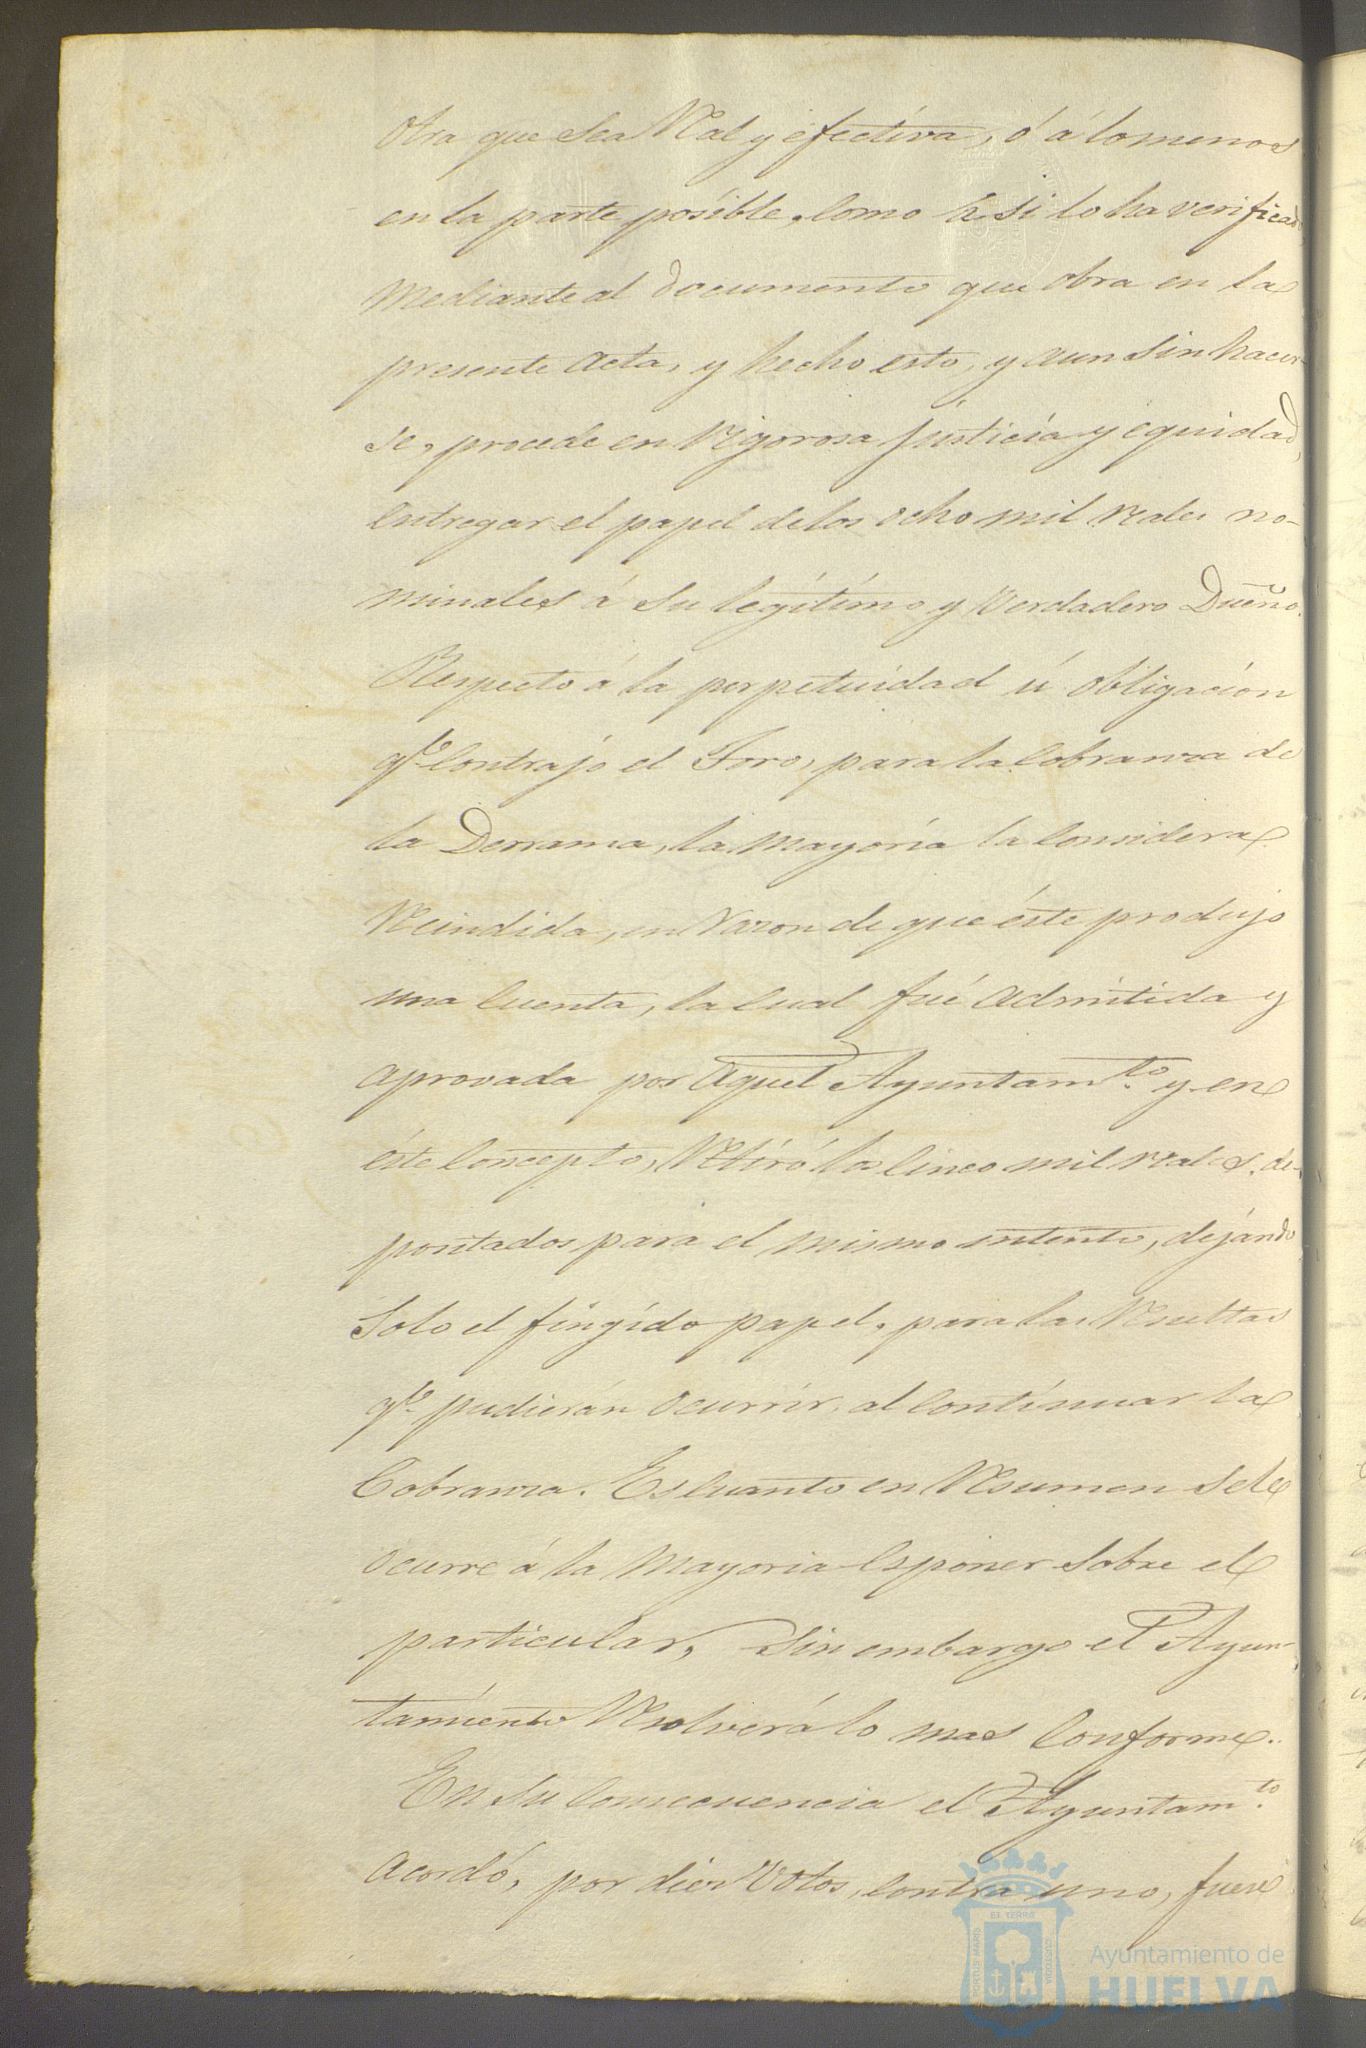 Otra que sea Real y efectiva, ó á lo menos
en la parte posible, como si lo ha verificado,
mediante al documento que obra en la
presente acta, y hecho esto, y aun sin hacer-
se, procede en rigorosa justicia y equidad,
entregar el papel de los ocho mil reales no-
minales á su legítimo y verdadero Dueño.
Respecto á la perpetuidad ú obligación
q.e contrajo el Toro, para la Cobranza de
la Derrama, la mayoría la considera
Recindida, en razon de que éste produjo
una cuenta, la cual fué admitida y
aprovada por aquel Ayuntam.to y en
éste concepto, Retiró los cinco mil reales de-
positados para el mismo intento, dejando
Solo el fingido papel, para las Resultas
q.e pudieran ocurrir al continuar la
Cobranza. Es cuanto en Resumen se le
ocurre á la mayoria esponer sobre el
particular, sin embargo el Ayun-
tamiento Resolverá lo mas conforme.
En su consecuencia el Ayuntam.to
acordó, por diez votos, contra uno, fuese
PORTUS MARIS ET TERRÆ CUSTODIA
Ayuntamiento de
HUELVA